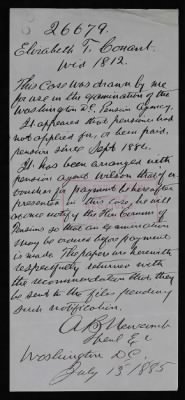 26679.
Elizabeth T. Conant.
Wid 1812.
This Case was drawn by me
for use in the examination of the
Washington D.C. Pension Agency.
It appears that pensioner had
not applied for, or been paid,
pension since Sept 1882.
It has been arranged with
pension agent Wilson that if a
voucher for payment be hereafter
presented in this case, he will
at once notify the Hon Commr of
Pensions so that an examination
may be ordered before payment
is made. The papers are herewith
respectfully returned with
the recommendation that they
be sent to the files pending
such notification.
A. B. Newcomb
Specl Ex
Washington D.C.
July 13 1885